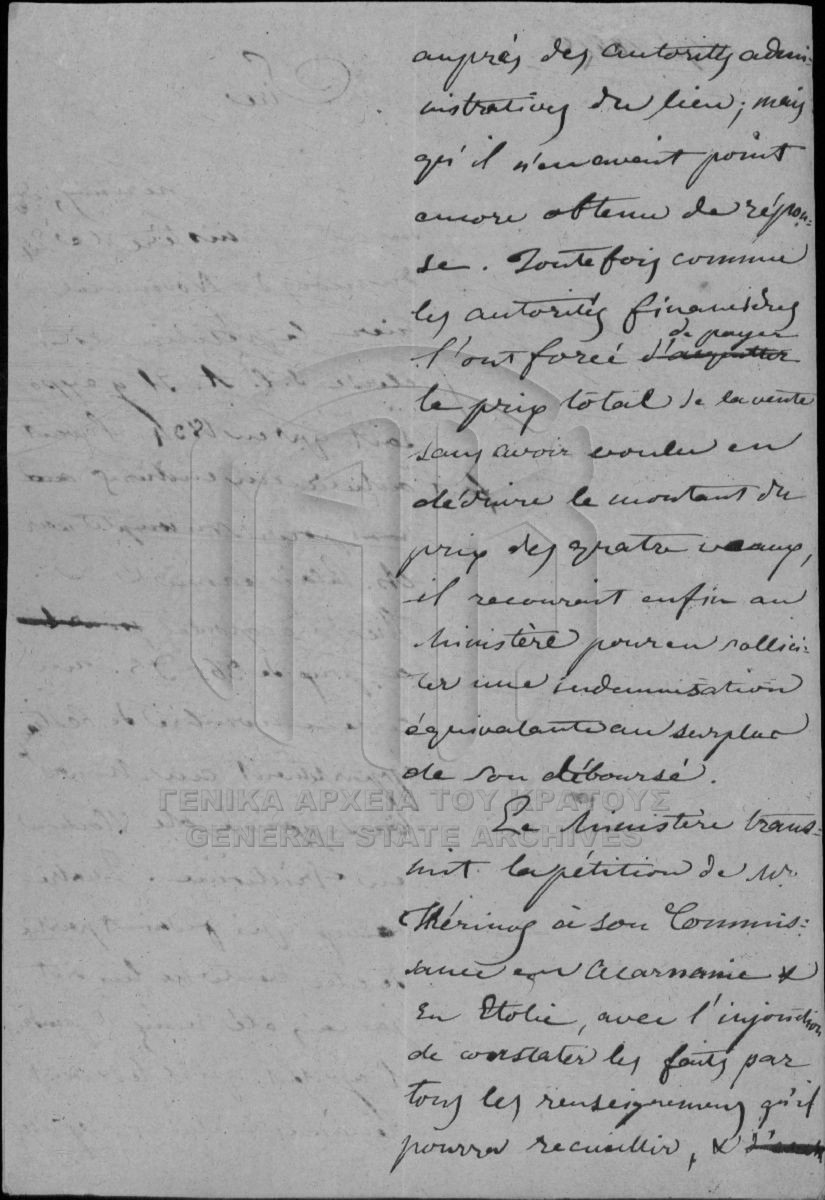 auprès des autorités admi-
nistratives du lieu; mais
qu'il n'en avait point
encore obtenu de répon-
se. Toutefois comme
les autorités financières
l'ont forcé de payer
le prix total de la vente
sans avoir voulu en
déduire le montant du
prix des quatre veaux,
il recourait enfin au
Ministère pour en sollici-
ter une indemnisation
équivalante au surplus
de son déboursé.
ΓΕΝΙΚΑ ΑΡΧΕΙΑ ΤΟΥ ΚΡΑΤΟΥΣ
GENERAL STATE ARCHIVES
Le Ministère trans-
mit la pétition de Mr.
à son Commis-
saire en Acarnanie &
En Etolie, avec l'injonction
de constater les faits par
tous les renseignemens qu'il
pourra recueillir, &